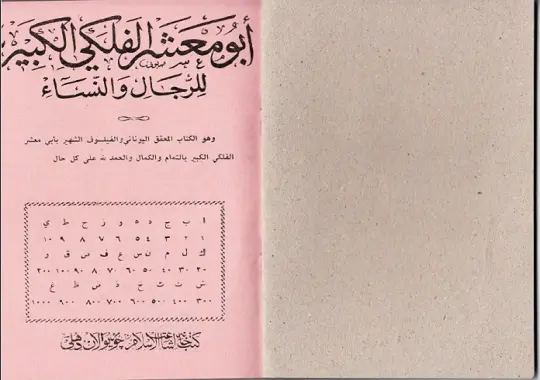 أبو معشر الفلكي الكبير
للرجال والنساء
وهو الكتاب المحقق اليوناني والفيلسوف الشهير بأبي معشر
الفلكي الكبير بالتمام والكمال والحمد لله على كل حال
ا ب ج د ه و ز ح ط ي
١ ٢ ٣ ٤ ٥ ٦ ٧ ٨ ٩ ١٠
ك ل م ن س ع ف ص ق و
٢٠ ٣٠ ٤٠ ٥٠ ٦٠ ٧٠ ٨٠ ٩٠ ١٠٠ ٢٠٠
ش ت ث خ ذ ض ظ غ
٣٠٠ ٤٠٠ ٥٠٠ ٦٠٠ ٧٠٠ ٨٠٠ ٩٠٠ ١٠٠٠
كتبخانه اشاعت الاسلام چوڑیوالان دهلی